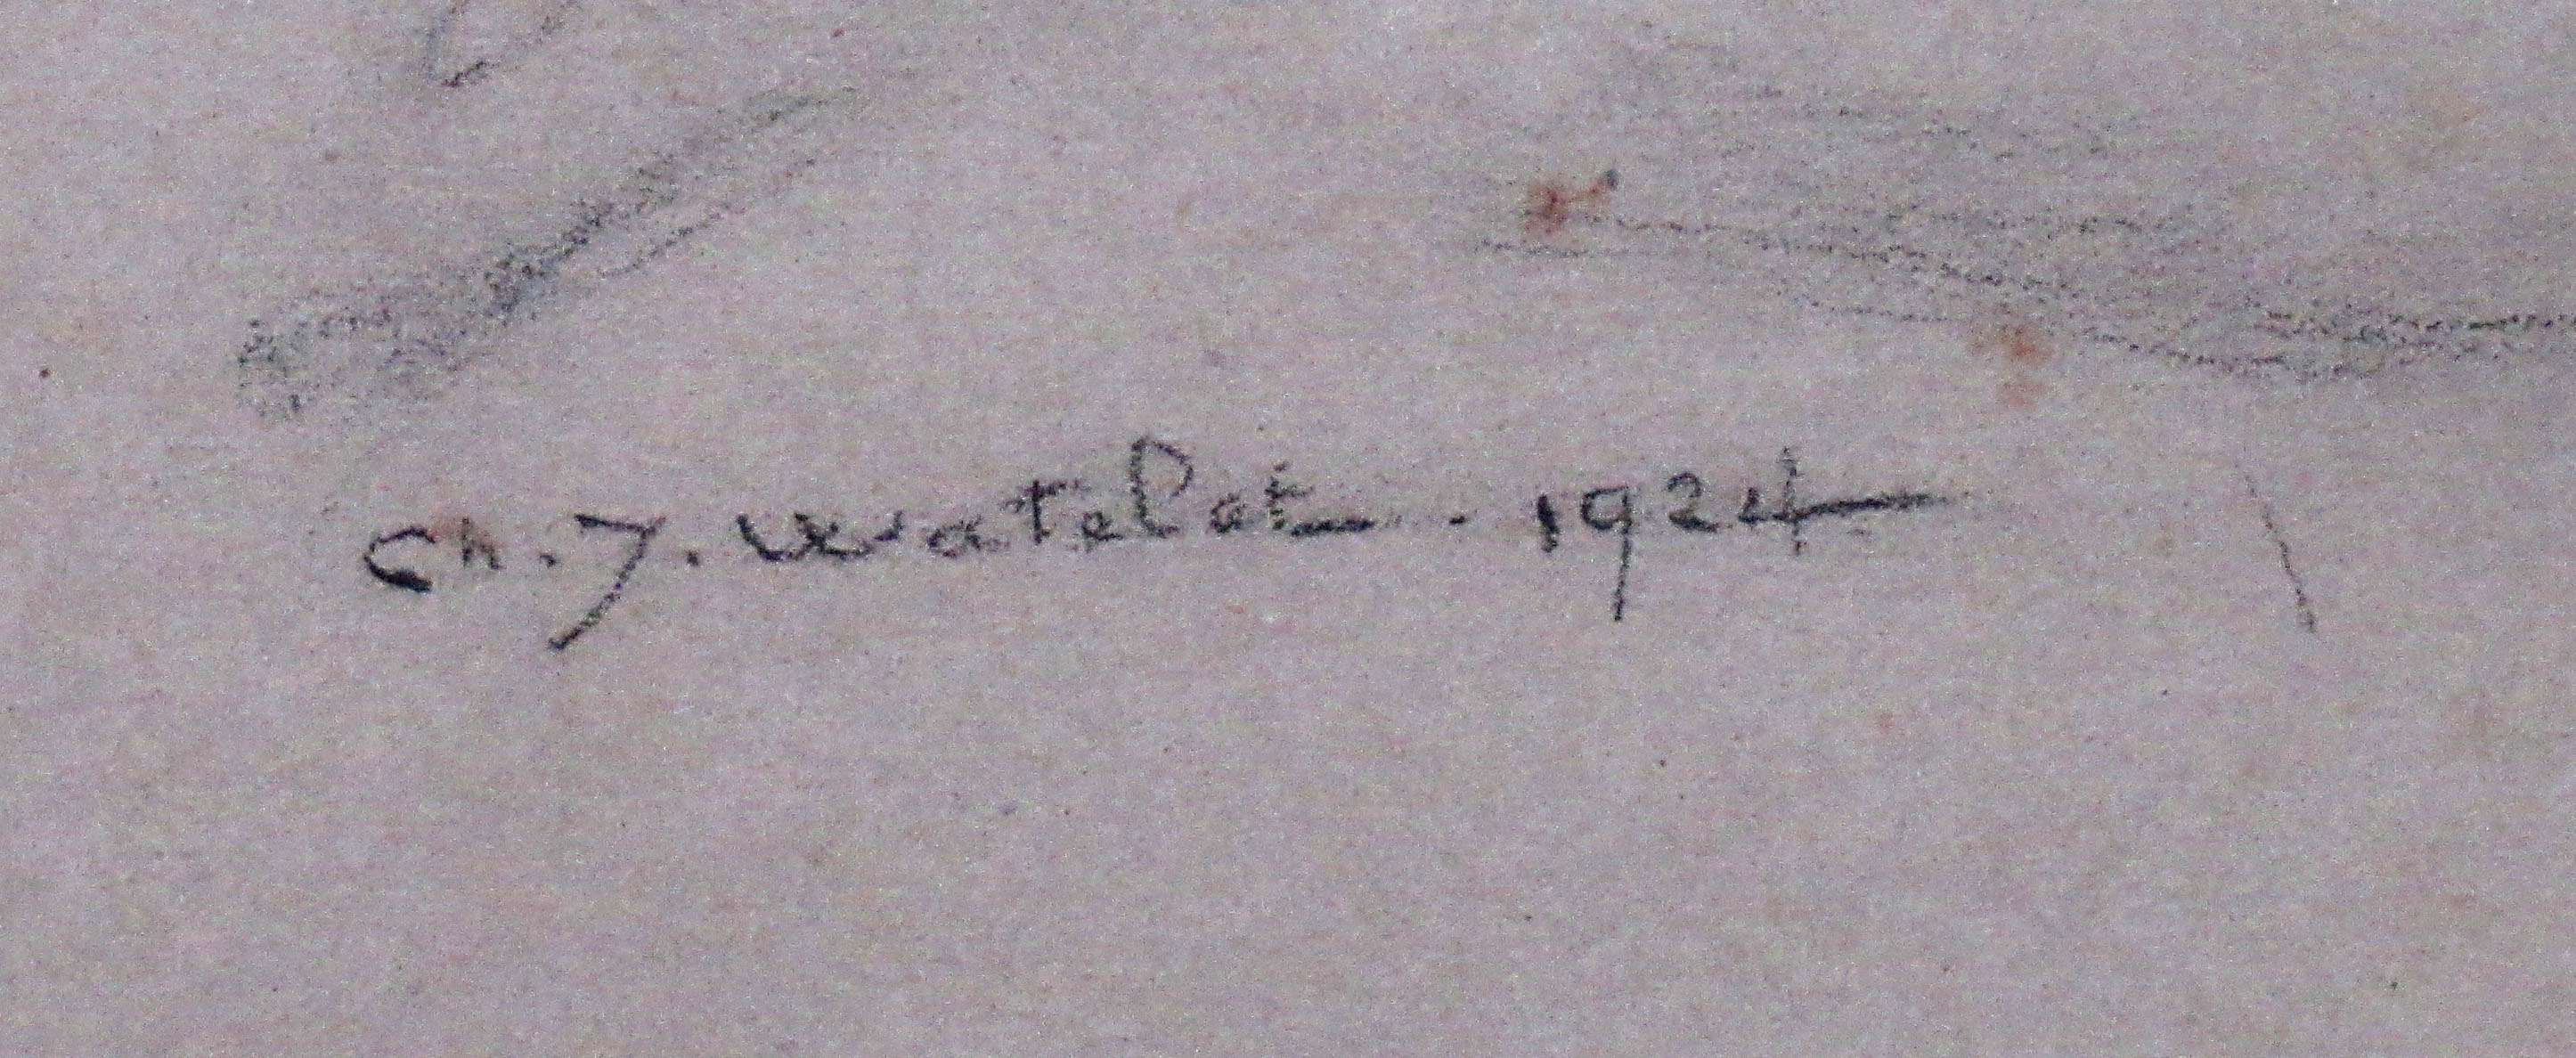 Ch. J. Watelet . 1924